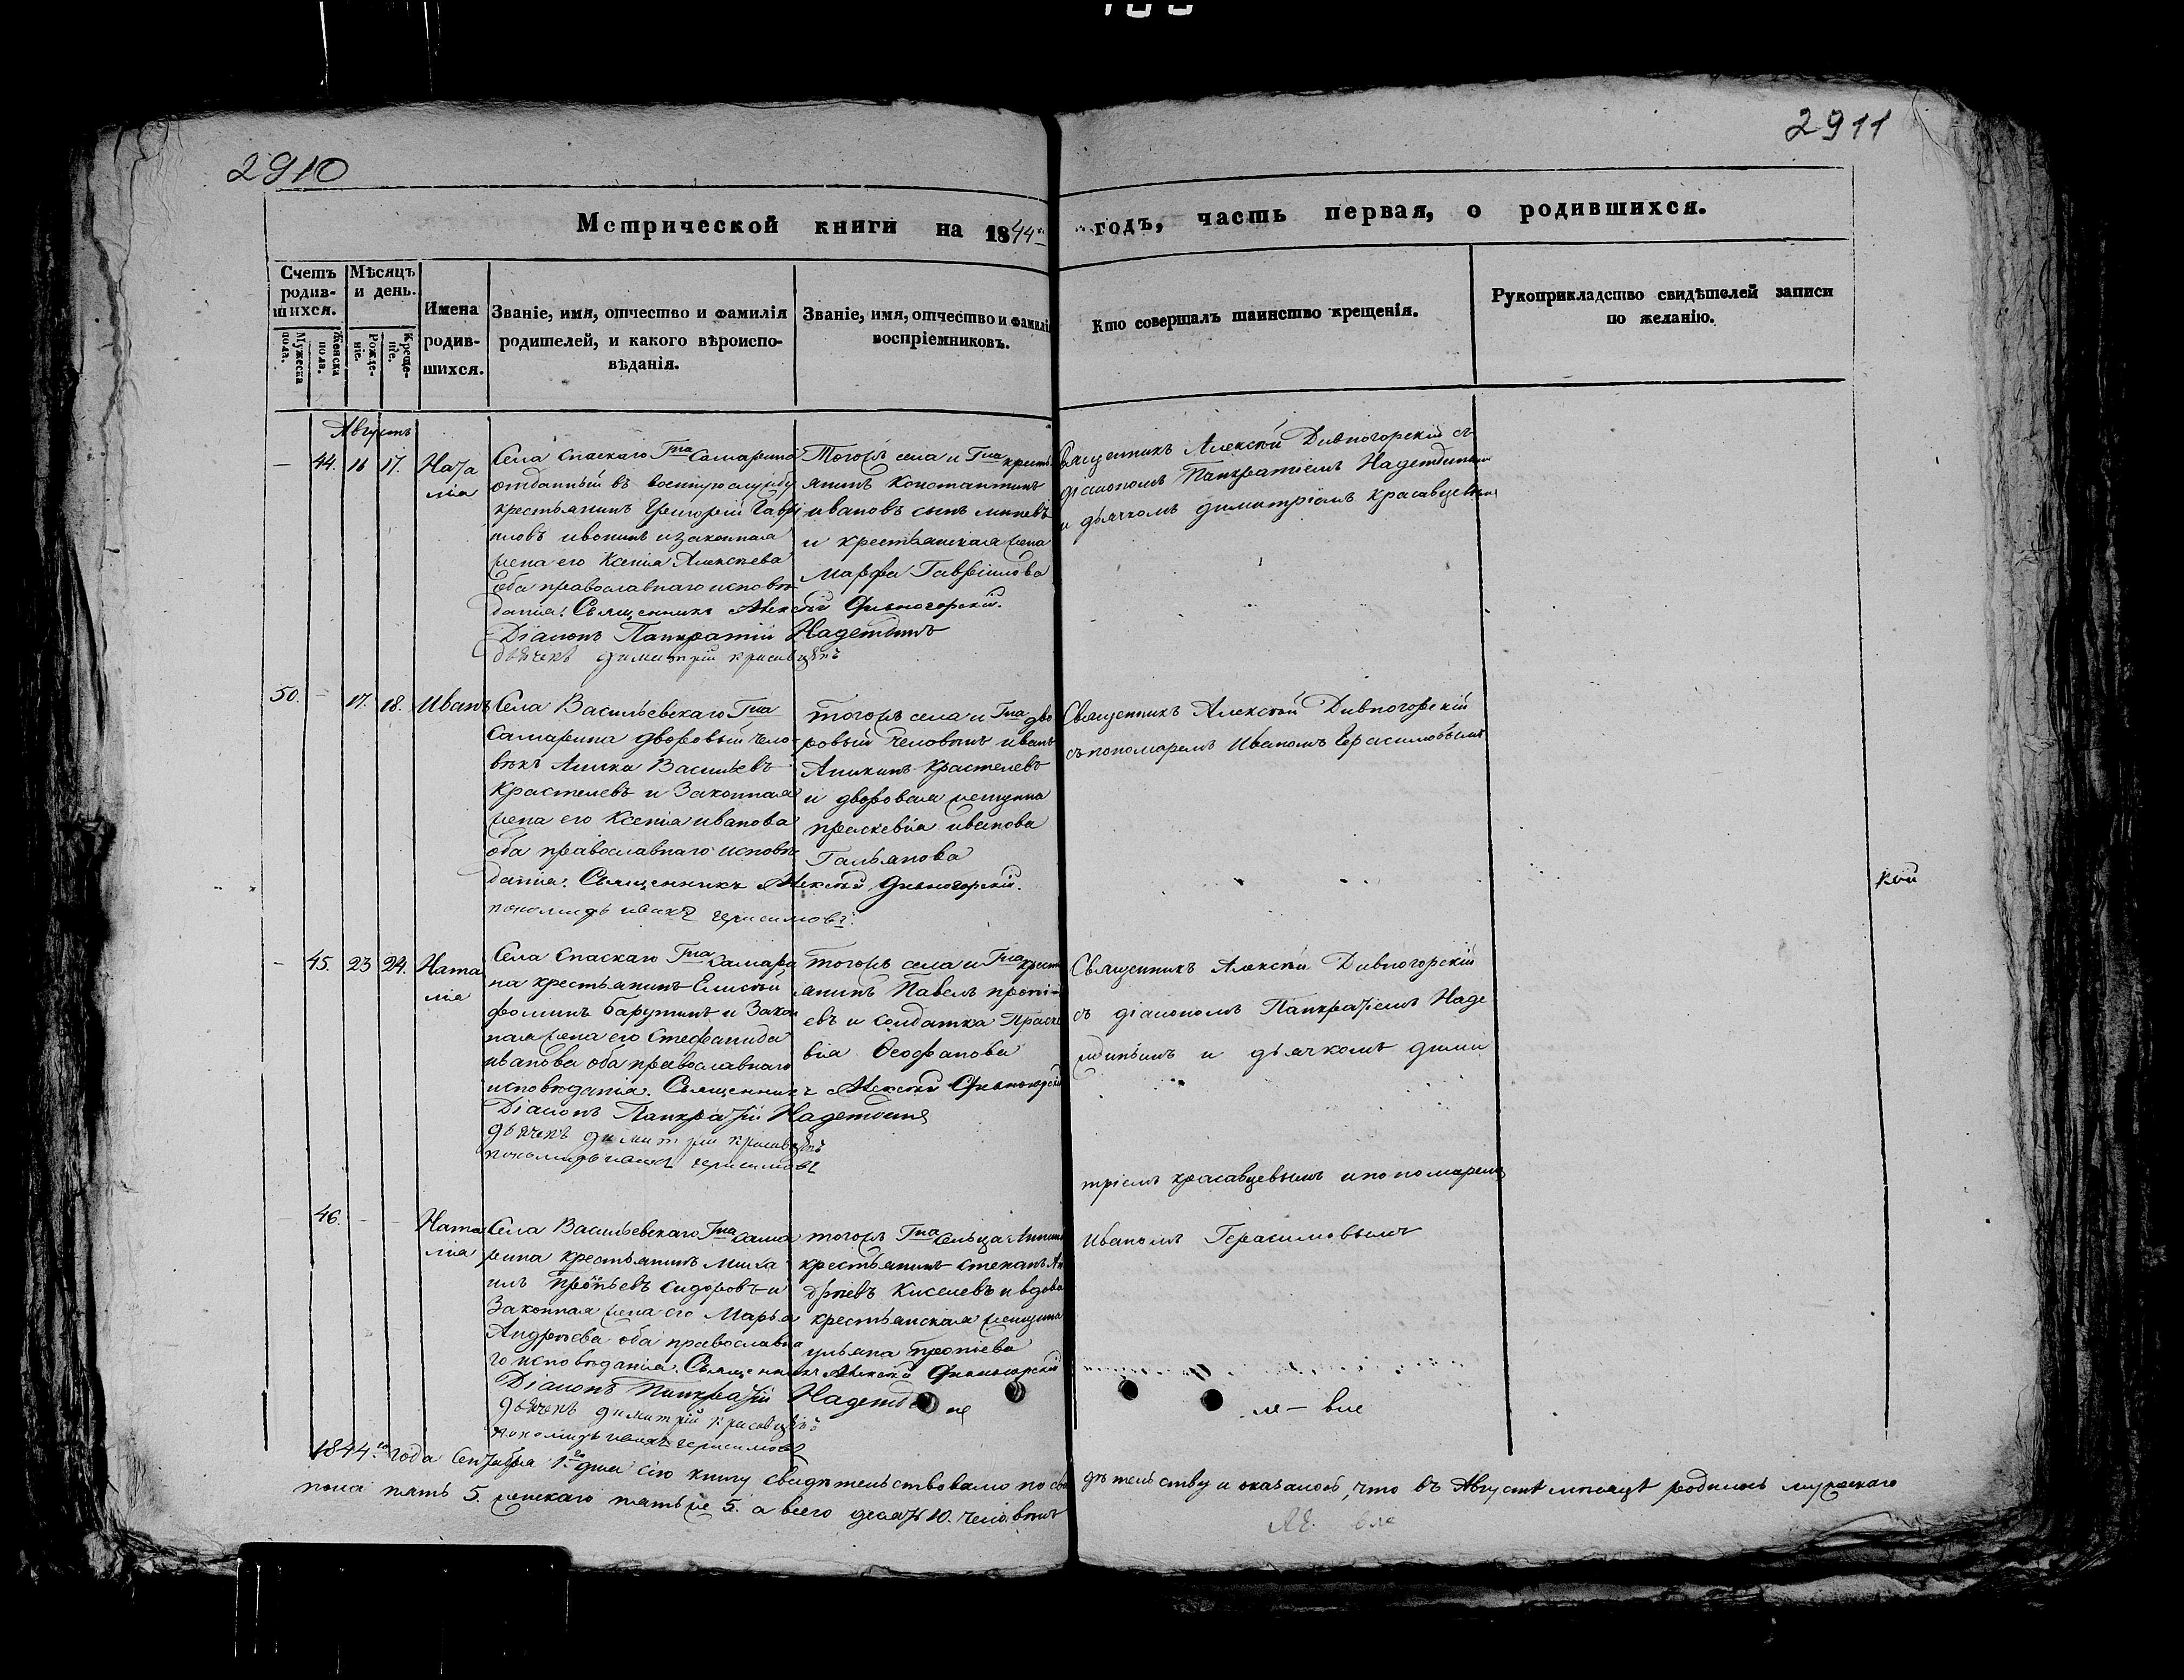 2910
2911
Метрической книги на 1844й годъ, часть первая, о родившихся.
Счетъ родив-шихся.
Мужеска пола.
Женска пола.
Мѣсяцъ и день.
Рожде-ніе.
Креще-ніе.
Имена родив-шихся.
Званіе, имя, отчество и фамилія родителей, и какого вѣроиспо-вѣданія.
Званіе, имя, отчество и фамилія воспріемниковъ.
Кто совершалъ таинство крещенія.
Рукоприкладство свидѣтелей записи по желанію.
Августъ
— 44. 16 17.
Ната
лія
Села Спаскаго Гна Самарина
отданный въ военную службу
крестьянинъ Григорій Гаврі
иловъ ивонинъ и законная
жена его Ксенія Алексѣева
оба православнаго исповѣ
данія. Священникъ Алексѣй Дивногорскій.
Діаконъ Панкратій Надеждинъ
дьячекъ димитрій красавцевъ
Тогожъ села и Гна кресть
янинъ Константинъ
ивановъ сынъ
и крестьянская жена
Марфа Гавріилова
Священникъ Алексѣй Дивногорскій съ
діакономъ Панкратіемъ Надеждинымъ
и дьячкомъ димитріемъ красавцевымъ
50. — 17. 18. Иванъ
Села Васильевскаго Гна
Самарина дворовый чело
вѣкъ Аника Васильевъ
Крастелевъ и Законная
жена его Ксенія иванова
оба православнаго исповѣ
данія. Священникъ Алексѣй Дивногорскій.
пономарь иванъ герасимовъ
тогожъ села и Гна дво
ровый человѣкъ иванъ
Аникинъ Крастелевъ
и дворовая женщина
праскевіа иванова
Гальянова
Священникъ Алексѣй Дивногорскій
съ пономаремъ Иваномъ Герасимовымъ
кой
— 45. 23 24.
Ната
лія
Села Спаскаго Гна Самари
на крестьянинъ Елисѣй
фоминъ Барутинъ и Закон
ная жена его Стефанида
иванова оба православнаго
исповѣданія. Священникъ Алексѣй Дивногорскій
Діаконъ Панкратій Надеждинъ
дьячекъ димитрій красавцевъ
пономарь иванъ герасимовъ
тогожъ села и Гна кресть
янинъ Павелъ
евъ и солдатка Праске
віа Ѳеофанова
Священникъ Алексѣй Дивногорскій
съ діакономъ Панкратіемъ Наде
ждинымъ и дьячкомъ дими
тріемъ красавцевымъ и пономаремъ
Иваномъ Герасимовымъ
— 46. — —
Ната
лія
Села Васильевскаго Гна Сама
рина крестьянинъ Миха
илъ Сидоровъ и
Законная жена его Марья
Андрѣева оба православна
го исповѣданія. Священникъ Алексѣй Дивногорскій
Діаконъ Панкратій Надеждинъ
дьячекъ димитрій красавцевъ
пономарь иванъ герасимовъ
тогожъ Гна сельца
крестьянинъ Степанъ Ан
дрѣевъ Киселевъ и вдова
крестьянская женщина
ульяна
1844го года Сентября 1го дня сію книгу свидѣтельствовали по сви дѣтельству и оказалось, что въ Августѣ мѣсяцѣ родилось мужескаго
пола пять 5. женскаго пять же 5. а всего десять 10. человѣкъ